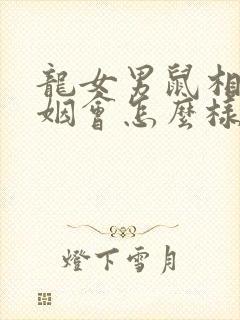 龍女男鼠相
姻會怎麼樣
燈下雪月